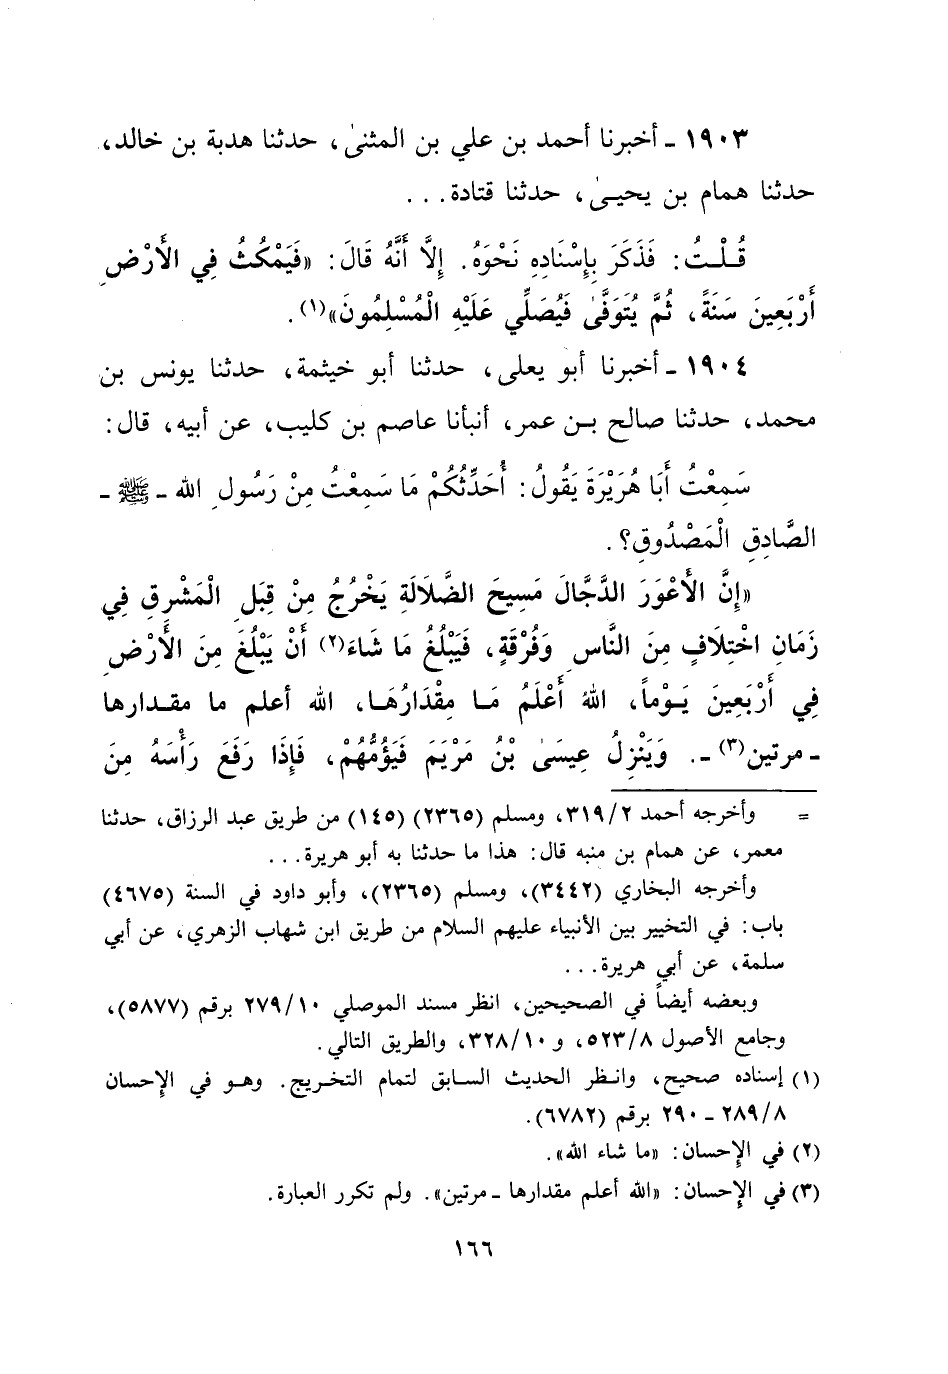 ١٩٠٣ - أخبرنا أحمد بن علي بن المثنىٰ، حدثنا هدبة بن خالد،
حدثنا همام بن يحيىٰ، حدثنا قتادة...
قُلْتُ: فَذَكَرَ بِإِسْنَادِهِ نَحْوَهُ. إِلَّا أَنَّهُ قَالَ: «فَيَمْكُثُ فِي الأَرْضِ
أَرْبَعِينَ سَنَةً، ثُمَّ يُتَوَفَّىٰ فَيُصَلِّي عَلَيْهِ الْمُسْلِمُونَ»(١).
١٩٠٤ - أخبرنا أبو يعلى، حدثنا أبو خيثمة، حدثنا يونس بن
محمد، حدثنا صالح بن عمر، أنبأنا عاصم بن كليب، عن أبيه، قال:
سَمِعْتُ أَبَا هُرَيْرَةَ يَقُولُ: أُحَدِّثُكُمْ مَا سَمِعْتُ مِنْ رَسُولِ الله - ﷺ -
الصَّادِقِ الْمَصْدُوقِ؟.
«إِنَّ الأَعْوَرَ الدَّجَّالَ مَسِيحَ الضَّلَالَةِ يَخْرُجُ مِنْ قِبَلِ الْمَشْرِقِ فِي
زَمَانِ اخْتِلَافٍ مِنَ النَّاسِ وَفُرْقَةٍ، فَيَبْلُغُ مَا شَاءَ(٢) أَنْ يَبْلُغَ مِنَ الأَرْضِ
فِي أَرْبَعِينَ يَوْماً، اللهُ أَعْلَمُ مَا مِقْدَارُهَا، الله أعلم ما مقدارها
- مرتين(٣) -. وَيَنْزِلُ عِيسَىٰ بْنُ مَرْيَمَ فَيَؤُمُّهُمْ، فَإِذَا رَفَعَ رَأْسَهُ مِنَ
= وأخرجه أحمد ٣١٩/٢، ومسلم (٢٣٦٥) (١٤٥) من طريق عبد الرزاق، حدثنا
معمر، عن همام بن منبه قال: هذا ما حدثنا به أبو هريرة...
وأخرجه البخاري (٣٤٤٢)، ومسلم (٢٣٦٥)، وأبو داود في السنة (٤٦٧٥)
باب: في التخيير بين الأنبياء عليهم السلام من طريق ابن شهاب الزهري، عن أبي
سلمة، عن أبي هريرة...
وبعضه أيضاً في الصحيحين، انظر مسند الموصلي ٢٧٩/١٠ برقم (٥٨٧٧)،
وجامع الأصول ٥٢٣/٨، و ٣٢٨/١٠، والطريق التالي.
(١) إسناده صحيح، وانظر الحديث السابق لتمام التخريج. وهو في الإحسان
٢٨٩/٨ - ٢٩٠ برقم (٦٧٨٢).
(٢) في الإحسان: «ما شاء الله».
(٣) في الإحسان: «الله أعلم مقدارها - مرتين». ولم تكرر العبارة.
١٦٦